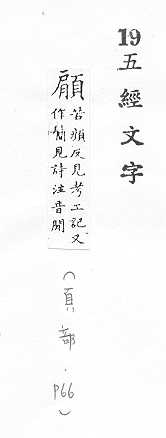 19五經文字
顅
苦顔反見考工記又
作簡見詩注音
（頁部．P66）